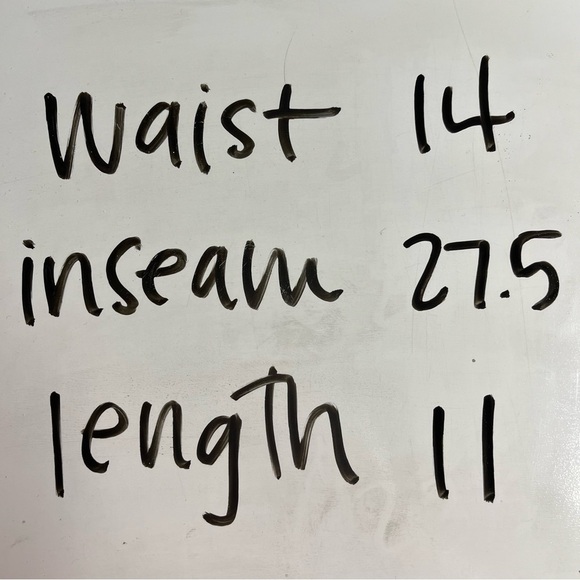 waist 14
inseam 27.5
length 11